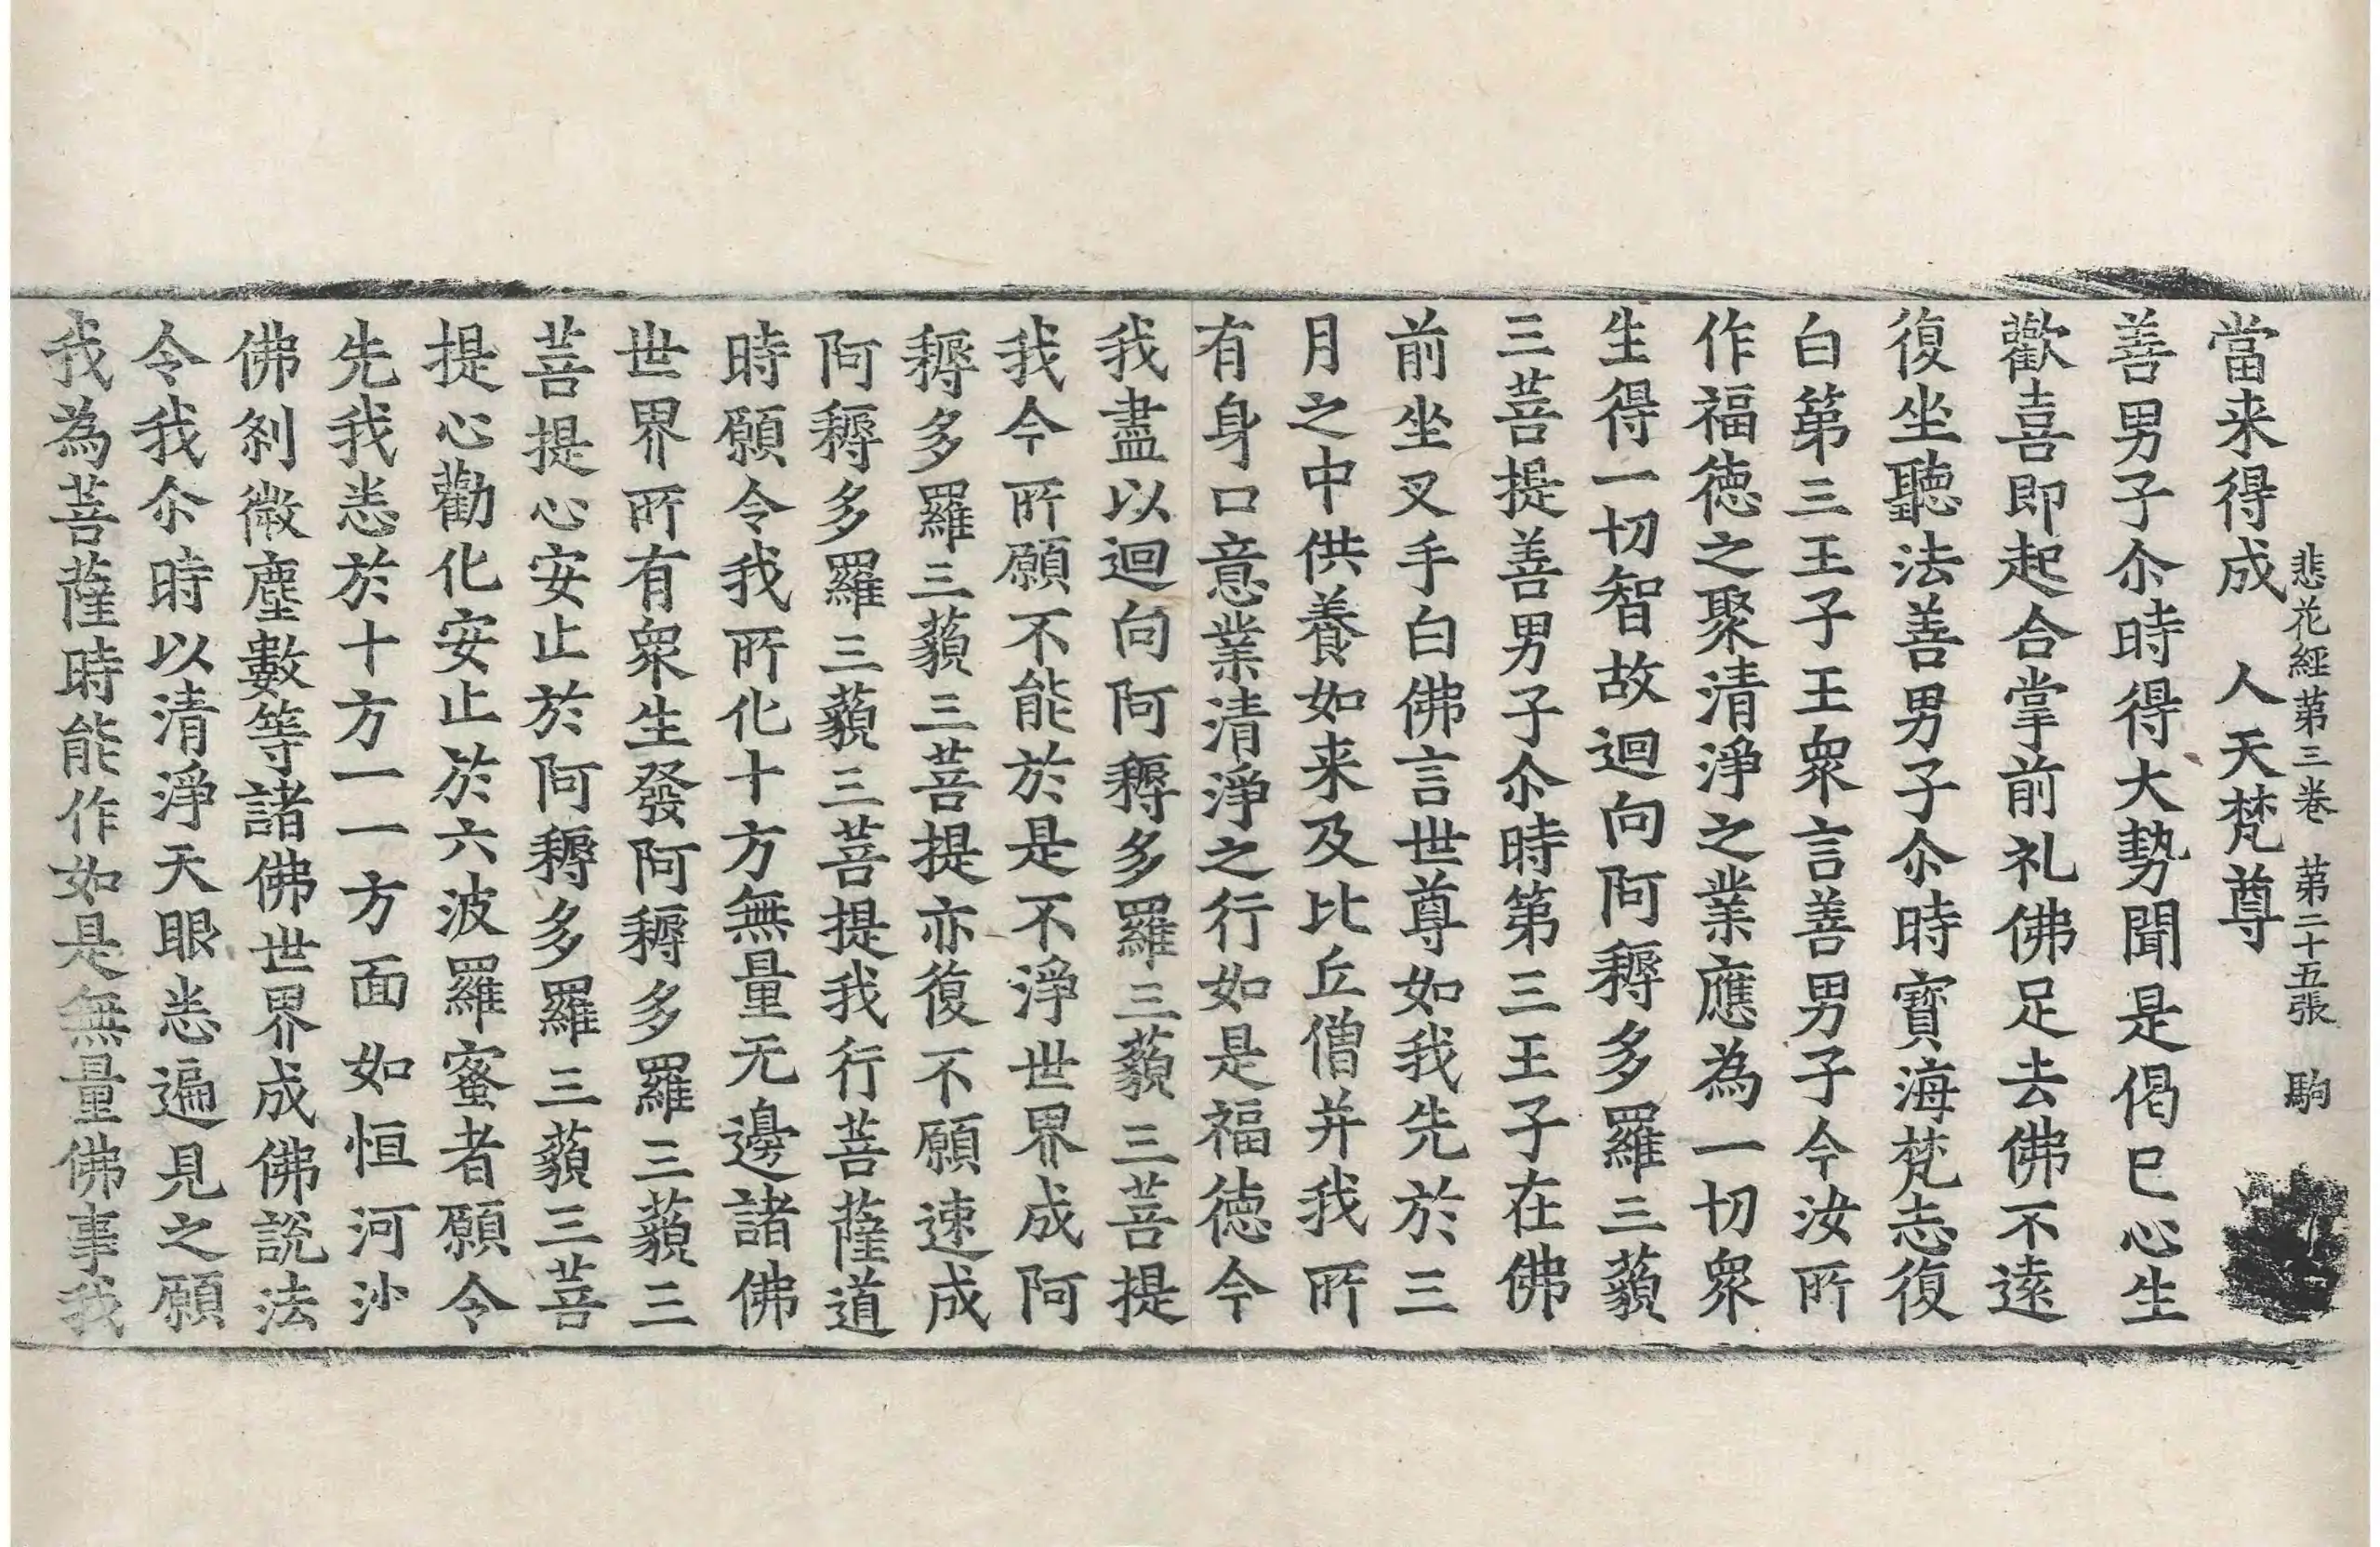 悲花經第三卷　第二十五張　駒
當来得成　人天梵尊
善男子尒時得大勢聞是偈已心生
歡喜即起合掌前礼佛足去佛不遠
復坐聽法善男子尒時寶海梵志復
白第三王子王衆言善男子今汝所
作福德之聚清淨之業應為一切衆
生得一切智故迴向阿耨多羅三藐
三菩提善男子尒時第三王子在佛
前坐叉手白佛言世尊如我先於三
月之中供養如来及比丘僧并我所
有身口意業清淨之行如是福德今
我盡以迴向阿耨多羅三藐三菩提
我今所願不能於是不淨世界成阿
耨多羅三藐三菩提亦復不願速成
阿耨多羅三藐三菩提我行菩薩道
時願令我所化十方無量无邊諸佛
世界所有衆生發阿耨多羅三藐三
菩提心安止於阿耨多羅三藐三菩
提心勸化安止於六波羅蜜者願令
先我悉於十方一一方面如恒河沙
佛刹微塵數等諸佛世界成佛說法
令我尒時以清淨天眼悉遍見之願
我為菩薩時能作如是無量佛事我